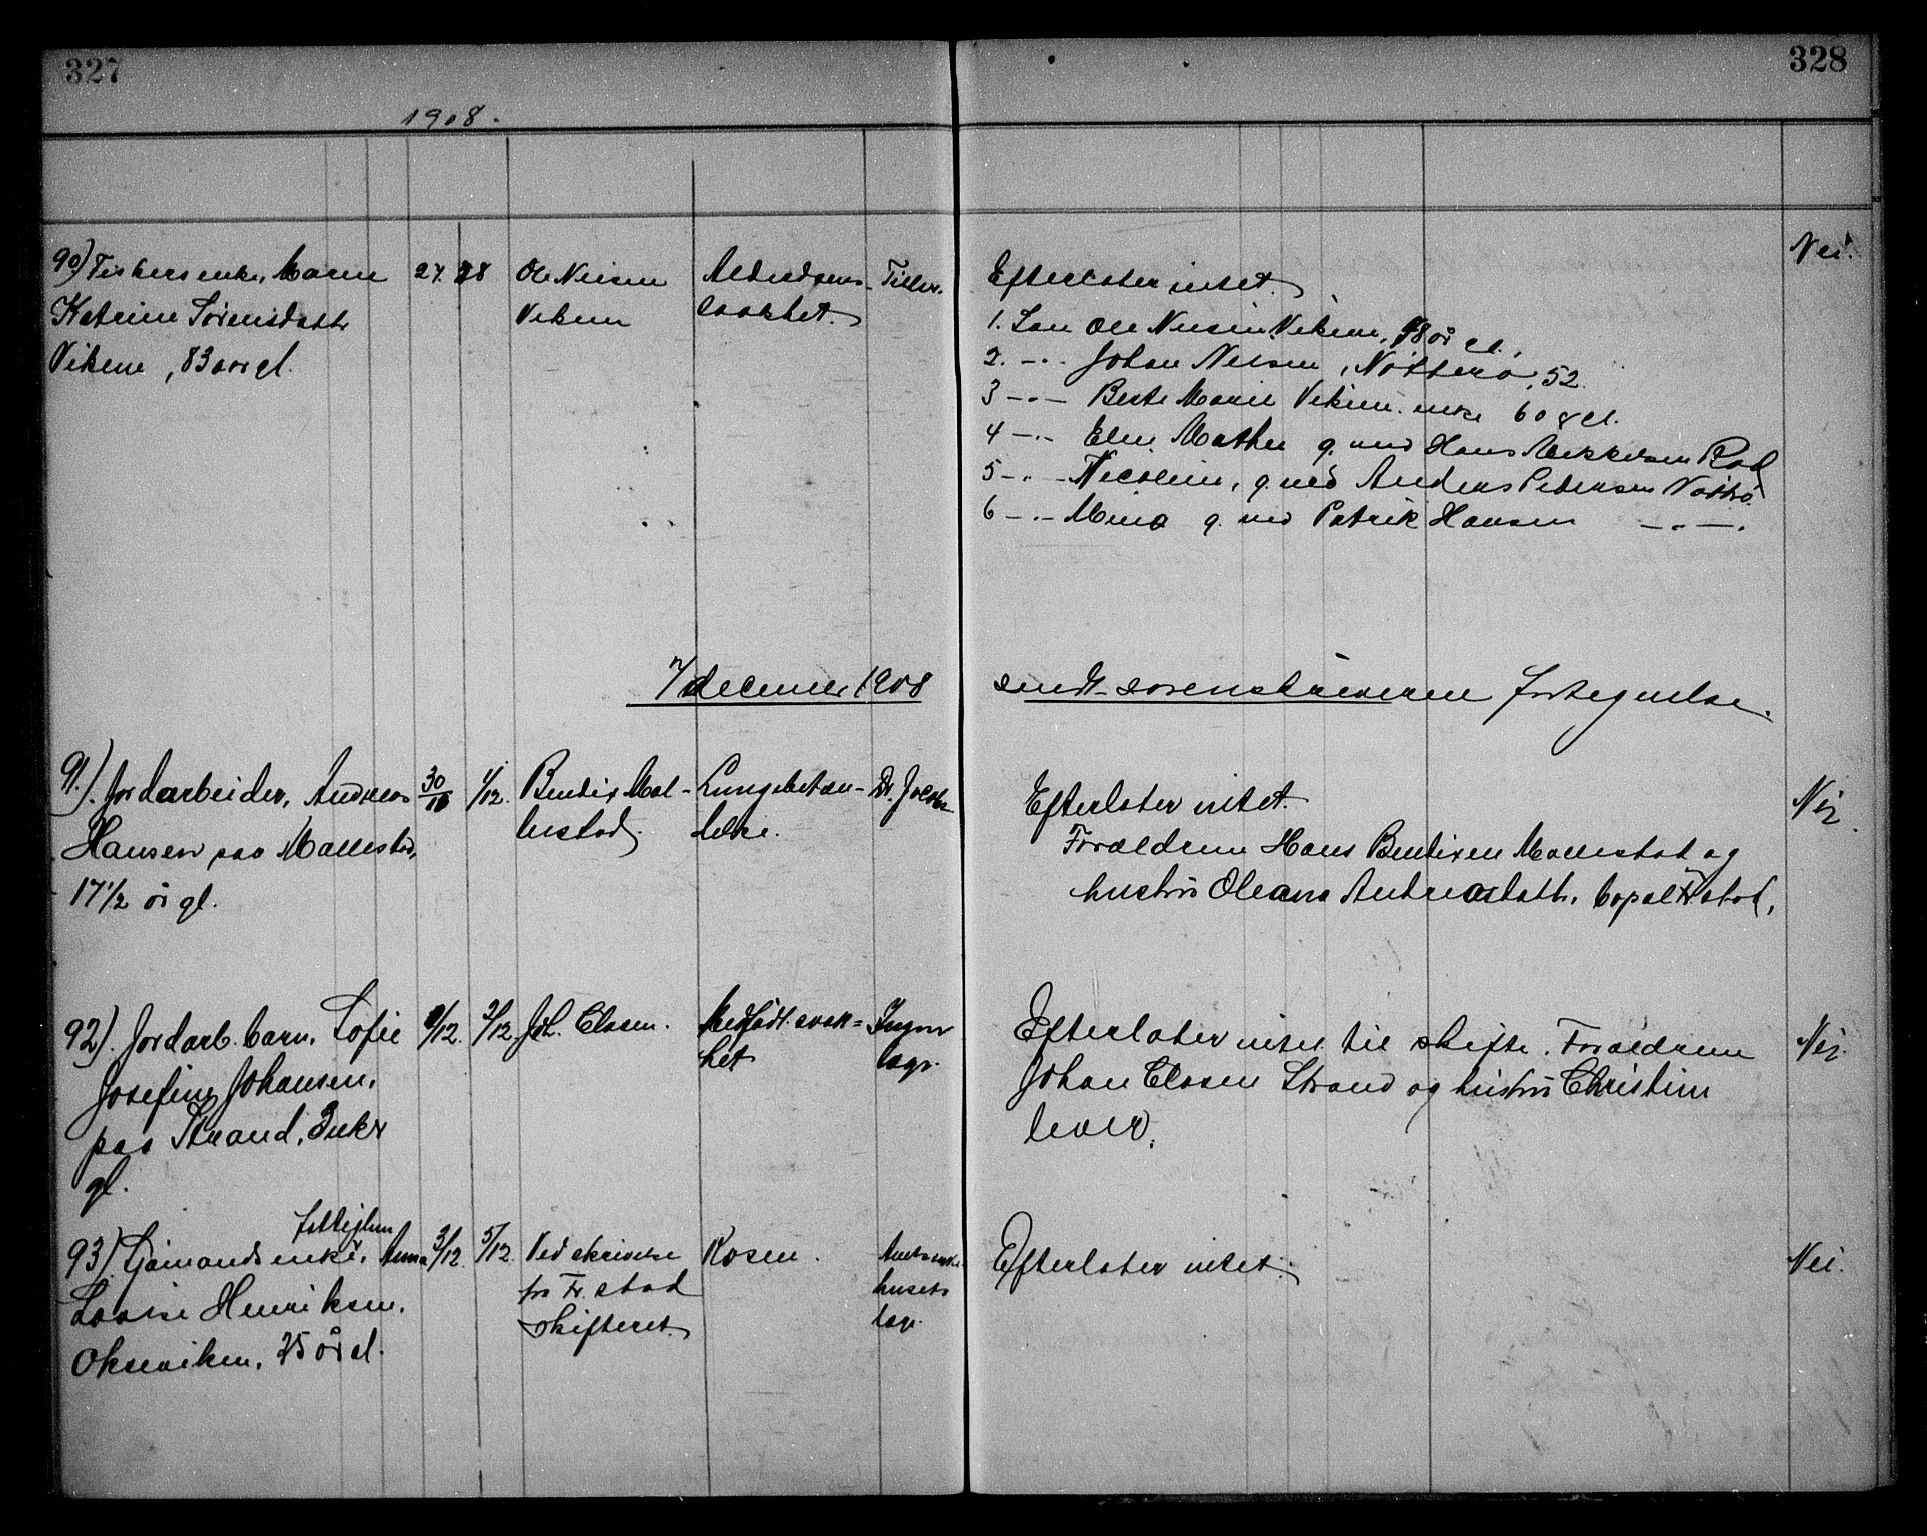 327
328
1908.
90) Fiskersenke, Maren
Katrine Sørensdatt.
Vikene, 83 aar gl.
27. 28
Ole Nilsen
Vikene
Alderdoms-
svakhet.
Efterlater intet.
Nei.
1. Søn Ole Nilsen Vikene, år gl.,
2. -"- Johan Nilsen, Nøtterø, 52
3 -"- Marie Vikene enke 60 år gl.
4 -"- Mathea g. med Hans Mikkelsen Rød
5 -"- Nicoline, g. med Anders Pedersen Nøttrø.
6 -"- Mina g. med Patrik Hansen -"-.
7/ december 1908 sendt sorenskriveren fortegnelse.
91.) Jordarbeider, Andreas
Hansen paa Mallestad,
17 1/2 år gl.
30/11
1/12.
Bendix Mal-
lestad.
Lungebetæn-
delse.
Dr.
Efterlater intet.
Forældrene Hans Bendixen Mallestad og
hustru Oleana Andreasdatt. bopæl Fr.stad.
Nei.
92). Jordarb. barn, Sofie
Josefine Johansen,
paa Strand, 3 uker
gl.
/12.
2/12.
Joh. Clasen.
Medfødt svak-
het
Ingen
læge.
Efterlater intet til skifte. Forældrene
Johan Clasen Strand og hustru Christine
lever.
Nei.
93) Sjømandsenke, fattiglem Anna
Lovise Henriksen,
Okseviken, 75 år gl.
3/12.
5/12.
Ved skrivelse
fra Fr.stad
skifteret.
Rosen.
Amtssyke-
husets
læge.
Efterlater intet.
Nei.